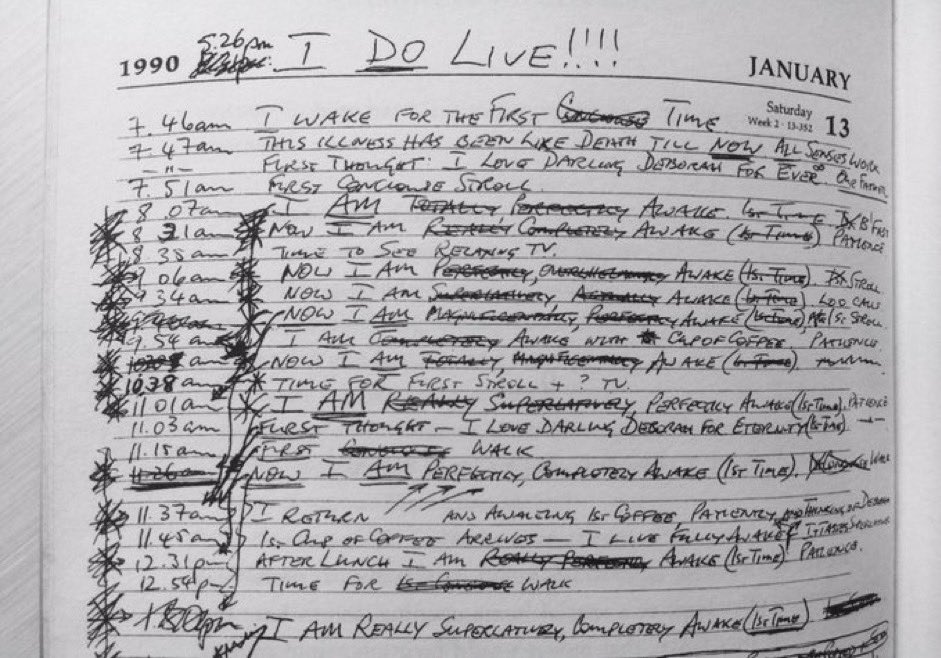 5.26pm I DO LIVE!!!!
1990 JANUARY
Saturday
Week 2 · 13-352 13
7.46am I WAKE FOR THE FIRST TIME
7.47am THIS ILLNESS HAS BEEN LIKE DEATH TILL NOW ALL SENSES WORK
-"- FIRST THOUGHT: I LOVE DARLING DEBORAH FOR EVER
7.51am FIRST CONCIOUSE STROLL.
8.07am I AM TOTALLY, PERFECTLY AWAKE. 1ST TIME B'FAST
8 31am NOW I AM REALLY COMPLETELY AWAKE (1ST TIME) PATIENCE
8 35am TIME TO SEE RELAXING TV.
9 06am NOW I AM PERFECTLY, OVERWHELMINGLY AWAKE (1ST TIME) 1ST STROLL
9 34am NOW I AM SUPERLATIVELY, ACTUALLY AWAKE (1ST TIME)
NOW I AM MAGNIFICENTLY, PERFECTLY AWAKE (1ST TIME) 1ST STROLL
9.54 am I AM COMPLETELY AWAKE WITH CUP OF COFFEE. PATIENCE
am NOW I AM TOTALLY, MAGNIFICENTLY AWAKE (1ST TIME)
10.38 am TIME FOR FIRST STROLL + ? TV.
11.01am I AM REALLY SUPERLATIVELY, PERFECTLY AWAKE (1ST TIME). PATIENCE
11.03am FIRST THOUGHT — I LOVE DARLING DEBORAH FOR ETERNITY (1ST TIME) -"-
11.15am FIRST WALK
11.26am NOW I AM PERFECTLY, COMPLETELY AWAKE (1ST TIME). WALK
11.37am I RETURN AND AWAITING 1ST COFFEE, PATIENTLY, AND THINKING OF DEBORAH
11.45am 1ST CUP OF COFFEE ARRIVES — I LIVE FULLY AWAKE IT TASTES
12.31pm AFTER LUNCH I AM REALLY PERFECTLY AWAKE (1ST TIME). PATIENCE.
12.54pm TIME FOR WALK
I AM REALLY SUPERLATIVELY, COMPLETELY AWAKE (1ST TIME)